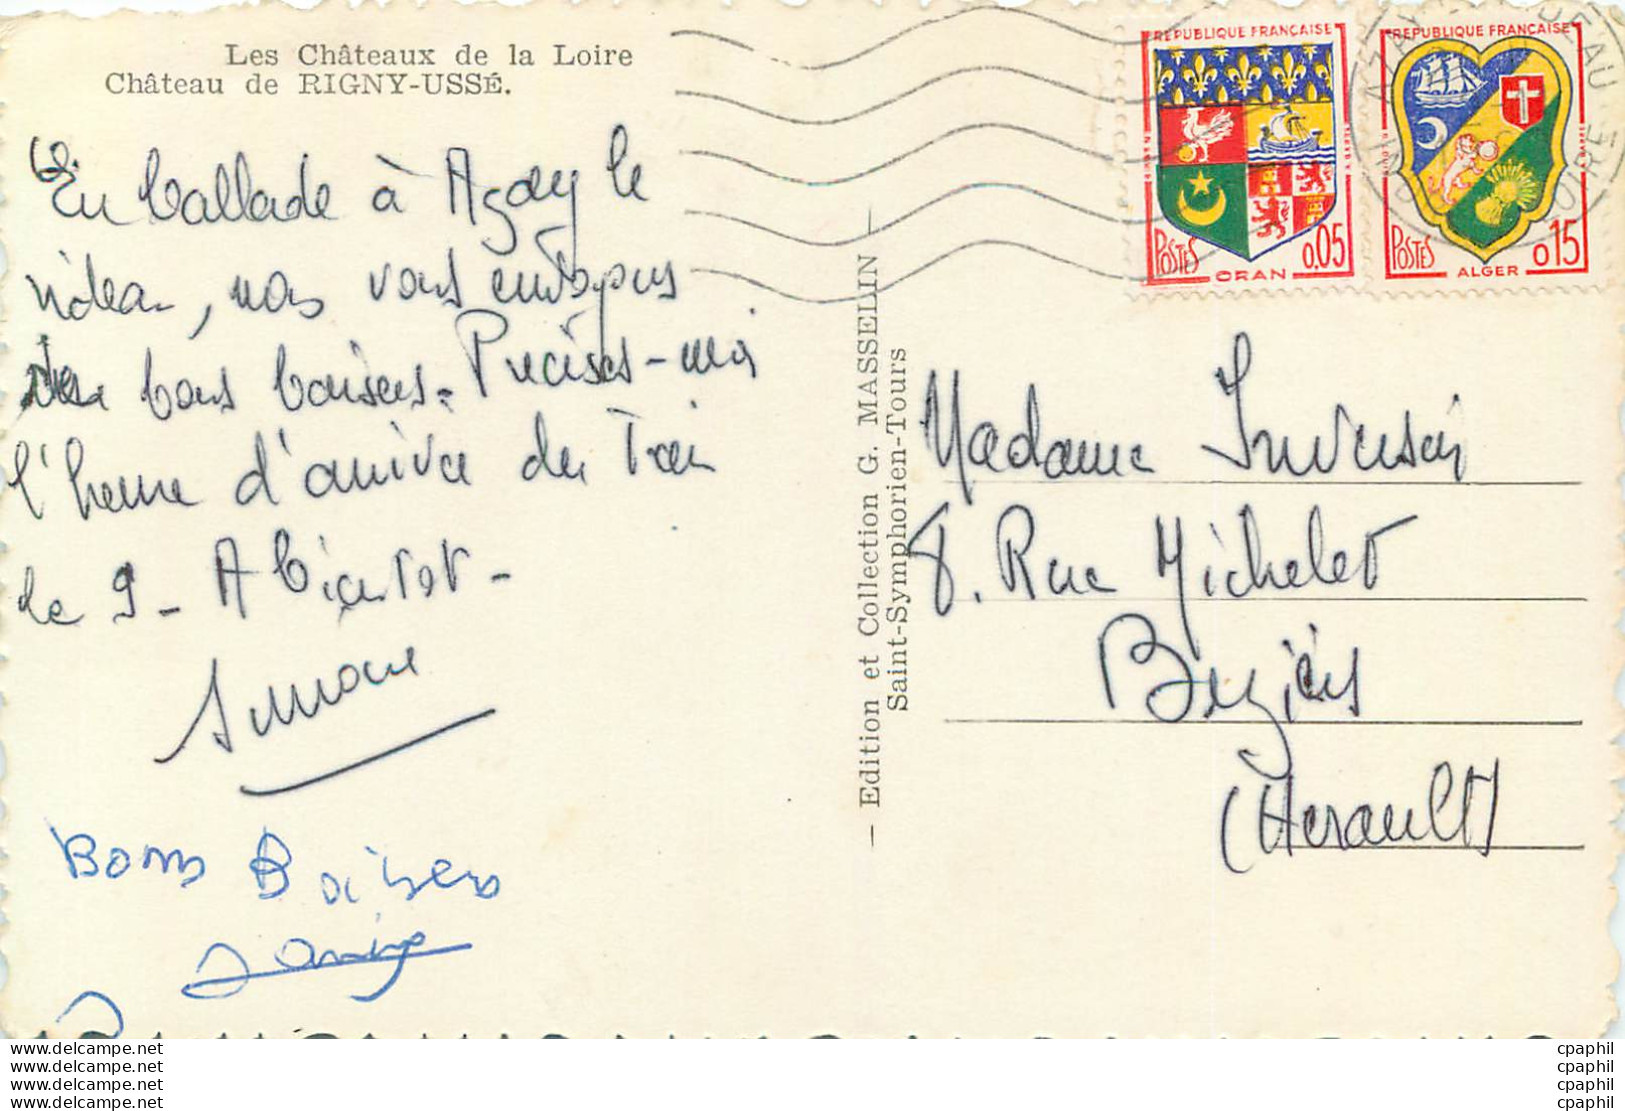 Les Châteaux de la Loire
Château de RIGNY-USSÉ.
En ballade à Azay le
rideau, nous vous envoyons
des bons baisers. Précises-moi
l'heure d'arrivée du Train
le 9 - A bientot -
Simone
Bons Baisers
— Edition et Collection G. MASSELIN —
Saint-Symphorien-Tours
REPUBLIQUE FRANÇAISE
POSTES
ORAN
0,05
REPUBLIQUE FRANÇAISE
POSTES
ALGER
0,15
Madame
8. Rue Michelet
Beziers
(Herault)
www.delcampe.net
www.delcampe.net
www.delcampe.net
www.delcampe.net
cpaphil
cpaphil
cpaphil
cpaphil